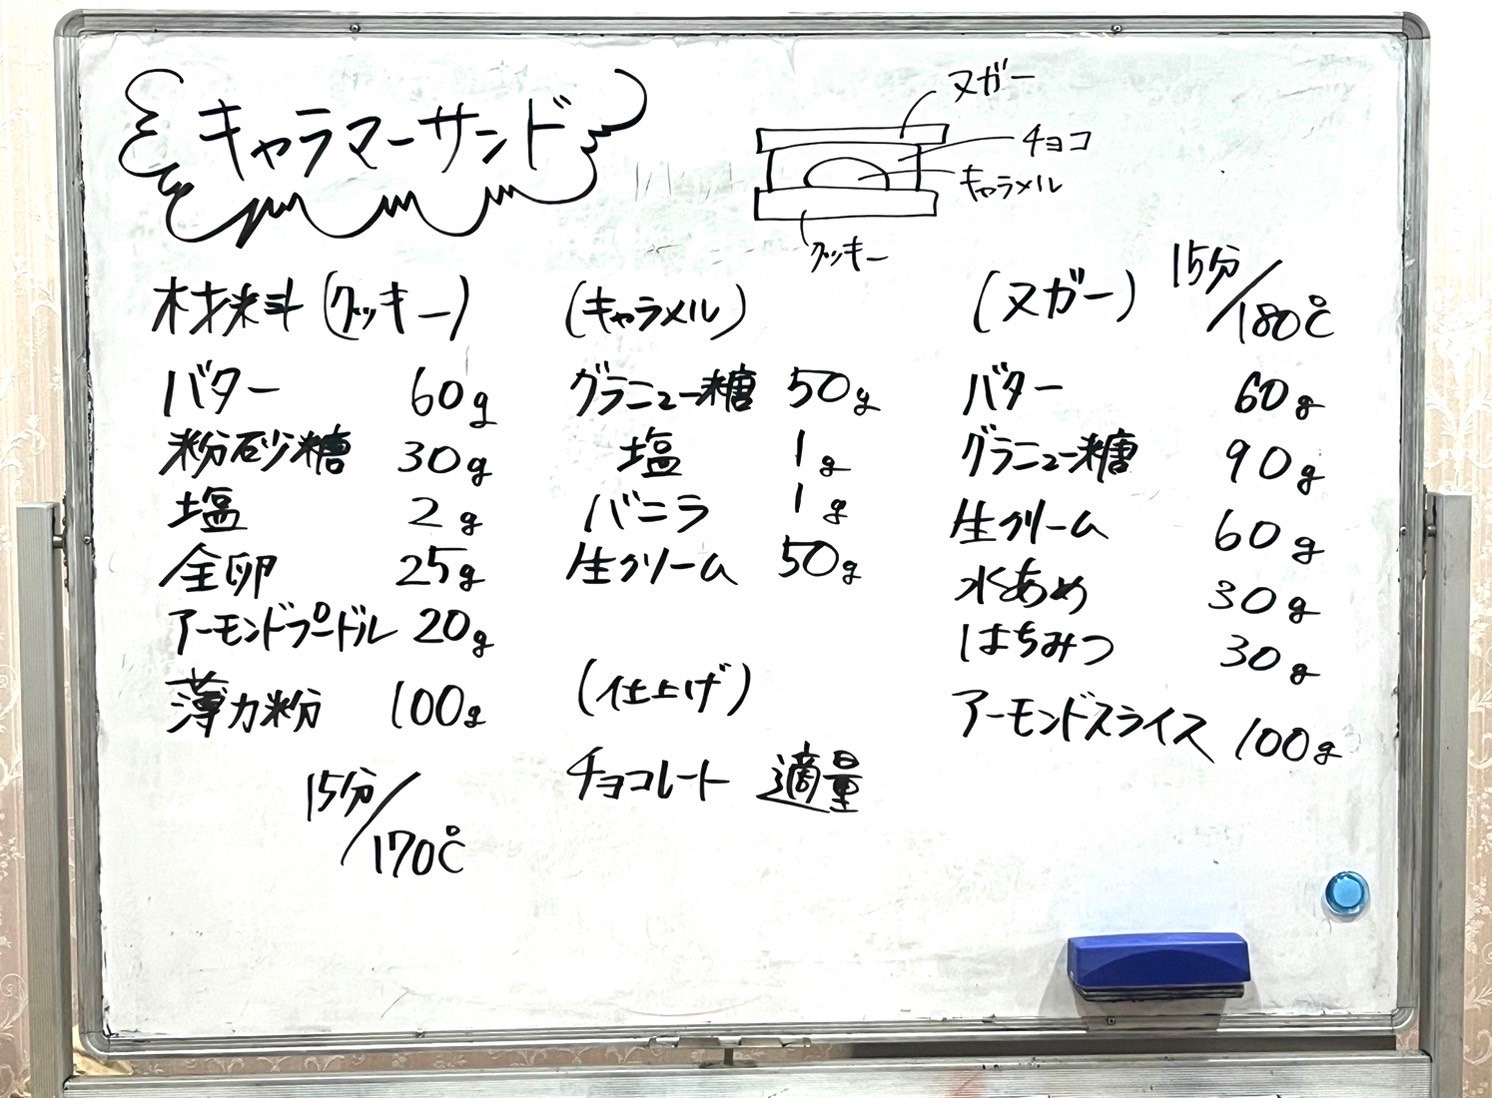 キャラマーサンド
ヌガー
チョコ
キャラメル
クッキー
材料(クッキー)
バター 60g
粉砂糖 30g
塩 2g
全卵 25g
アーモンドプードル 20g
薄力粉 100g
15分/170℃
(キャラメル)
グラニュー糖 50g
塩 1g
バニラ 1g
生クリーム 50g
(仕上げ)
チョコレート 適量
(ヌガー) 15分/180℃
バター 60g
グラニュー糖 90g
生クリーム 60g
水あめ 30g
はちみつ 30g
アーモンドスライス 100g